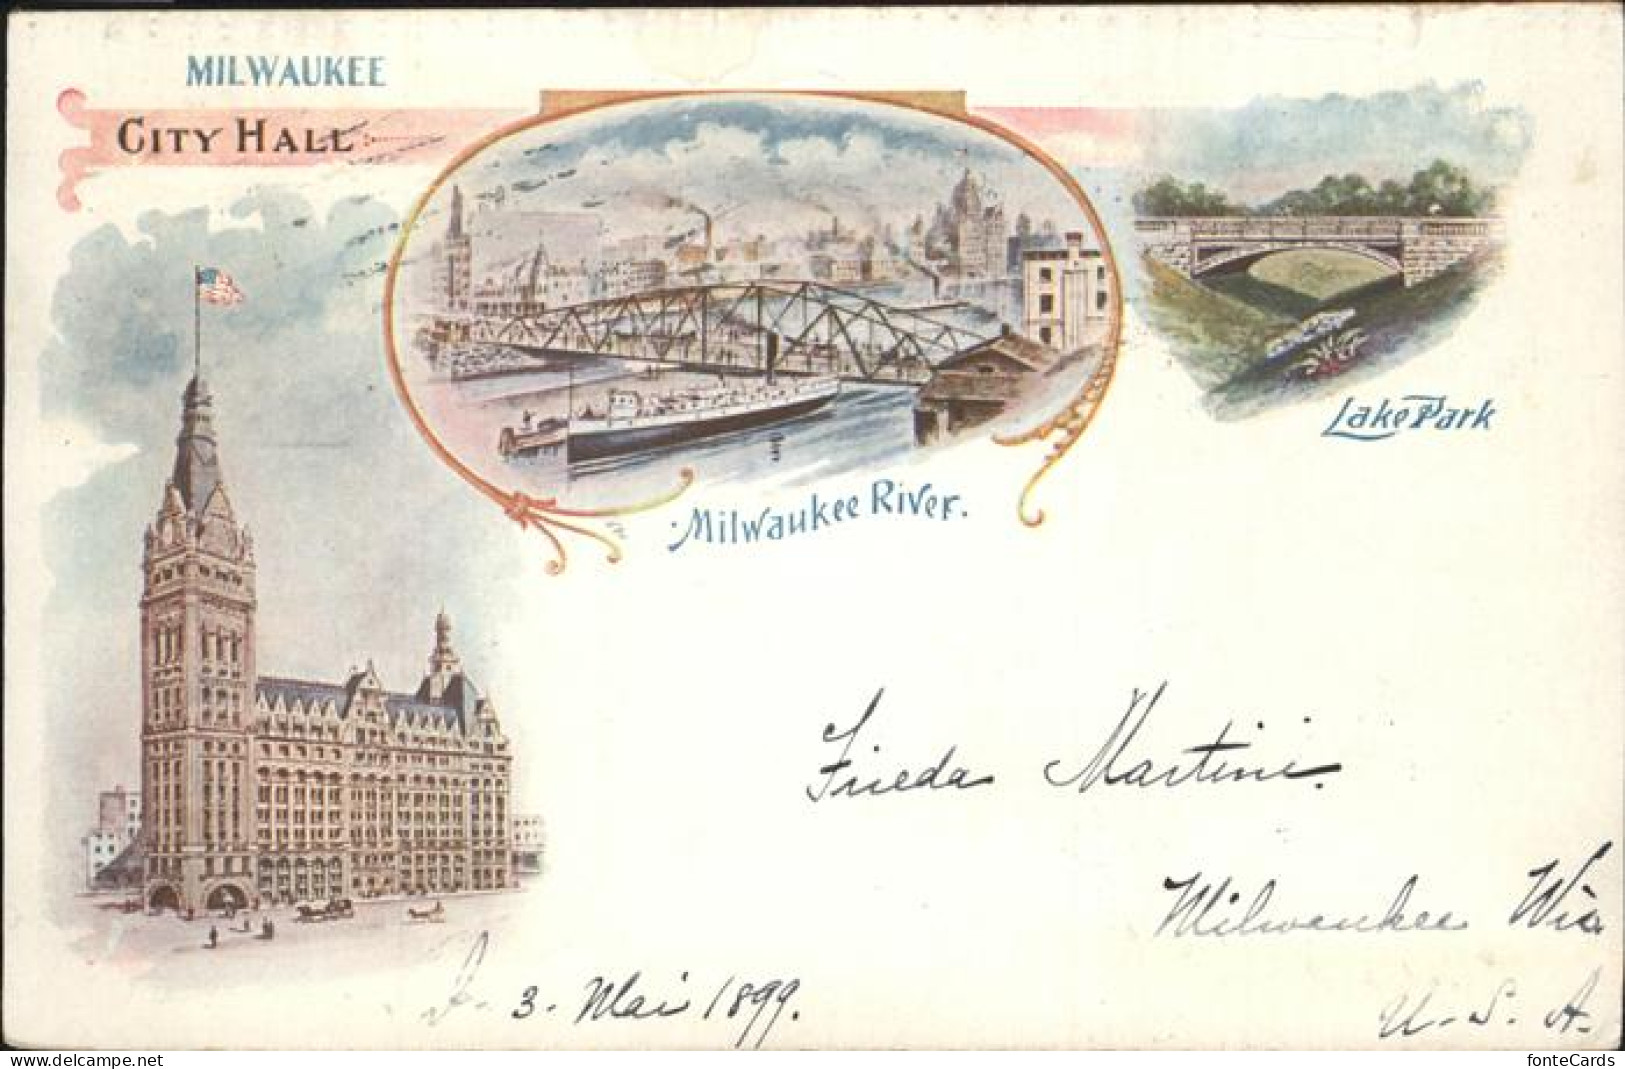 MILWAUKEE
CITY HALL
Milwaukee River.
Lake Park
Frieda Martini.
Milwaukee Wis.
U. S. A.
3. Mai 1899.
fonteCards